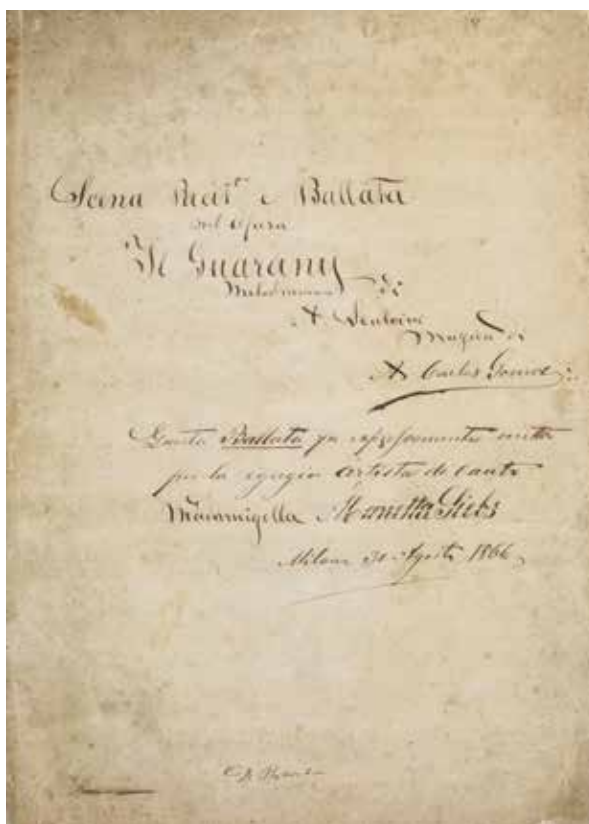 Scena Recit.º e Ballata
nell'Opera
Il Guarany
Melodramma di
A. Scalvini
Musica di
A. Carlos Gomes
Questa Ballata fu espressamente scritta
per la egregia artista di canto
Madamigella
Milano 30 Agosto 1866